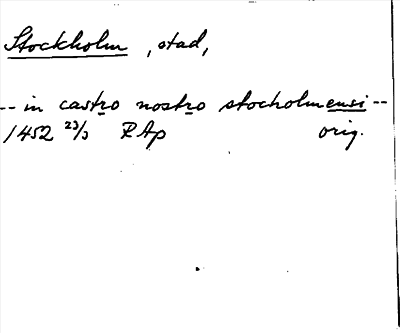 Stockholm, stad,
-- in castro nostro stocholmensi --
1452 23/3 RAp orig.